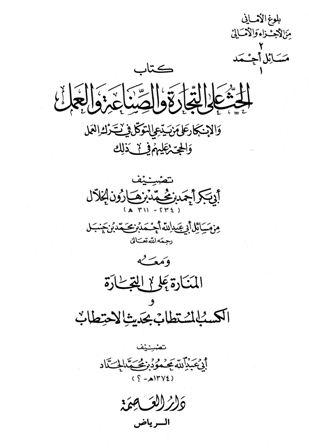 بلوغ الأماني
من الأجزاء والأمالي
٢
مسائل أحمد
١
كتاب
الحث على التجارة والصناعة والعمل
والإنكار على من يدعي التوكل في ترك العمل
والحجة عليهم في ذلك
تصنيف
أبي بكر أحمد بن محمد بن هارون الخلال
(٢٣٤ - ٣١١ هـ)
من مسائل أبي عبد الله أحمد بن محمد بن حنبل
رحمه الله تعالى
ومعه
المنارة على التجارة
و
الكسب المستطاب بحديث الاحتطاب
تصنيف
أبي عبد الله محمود بن محمد الحداد
(١٣٧٤هـ - ؟)
دار العاصمة
الرياض